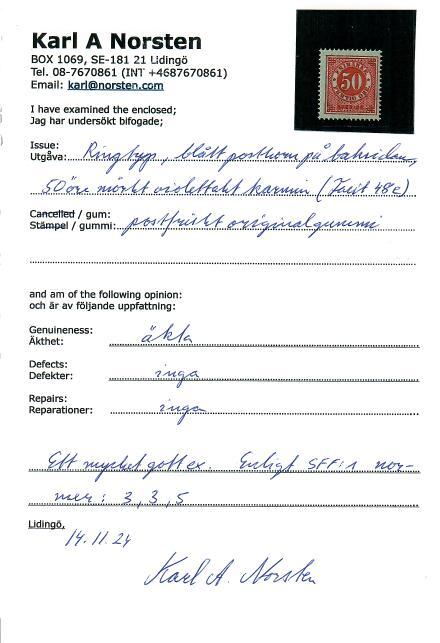 Karl A Norsten
BOX 1069, SE-181 21 Lidingö
Tel. 08-7670861 (INT +4687670861)
Email: karl@norsten.com
50
I have examined the enclosed;
Jag har undersökt bifogade;
Issue:
Utgåva: Ringtyp, blått posthorn på baksidan,
50 öre mörkt violettakt karmin (Facit 48e)
Cancelled / gum:
Stämpel / gummi: postfriskt originalgummi
and am of the following opinion:
och är av följande uppfattning:
Genuineness:
Äkthet: äkta
Defects:
Defekter: inga
Repairs:
Reparationer: inga
Ett mycket gott ex. Enligt SFF:s nor-
mer: 3, 3, 5
Lidingö,
14.11.24
Karl A. Norsten